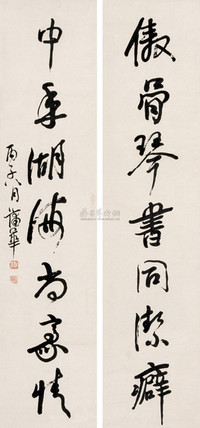 傲骨琴書同潔癖
中年湖海尚豪情
丙子八月蒲華